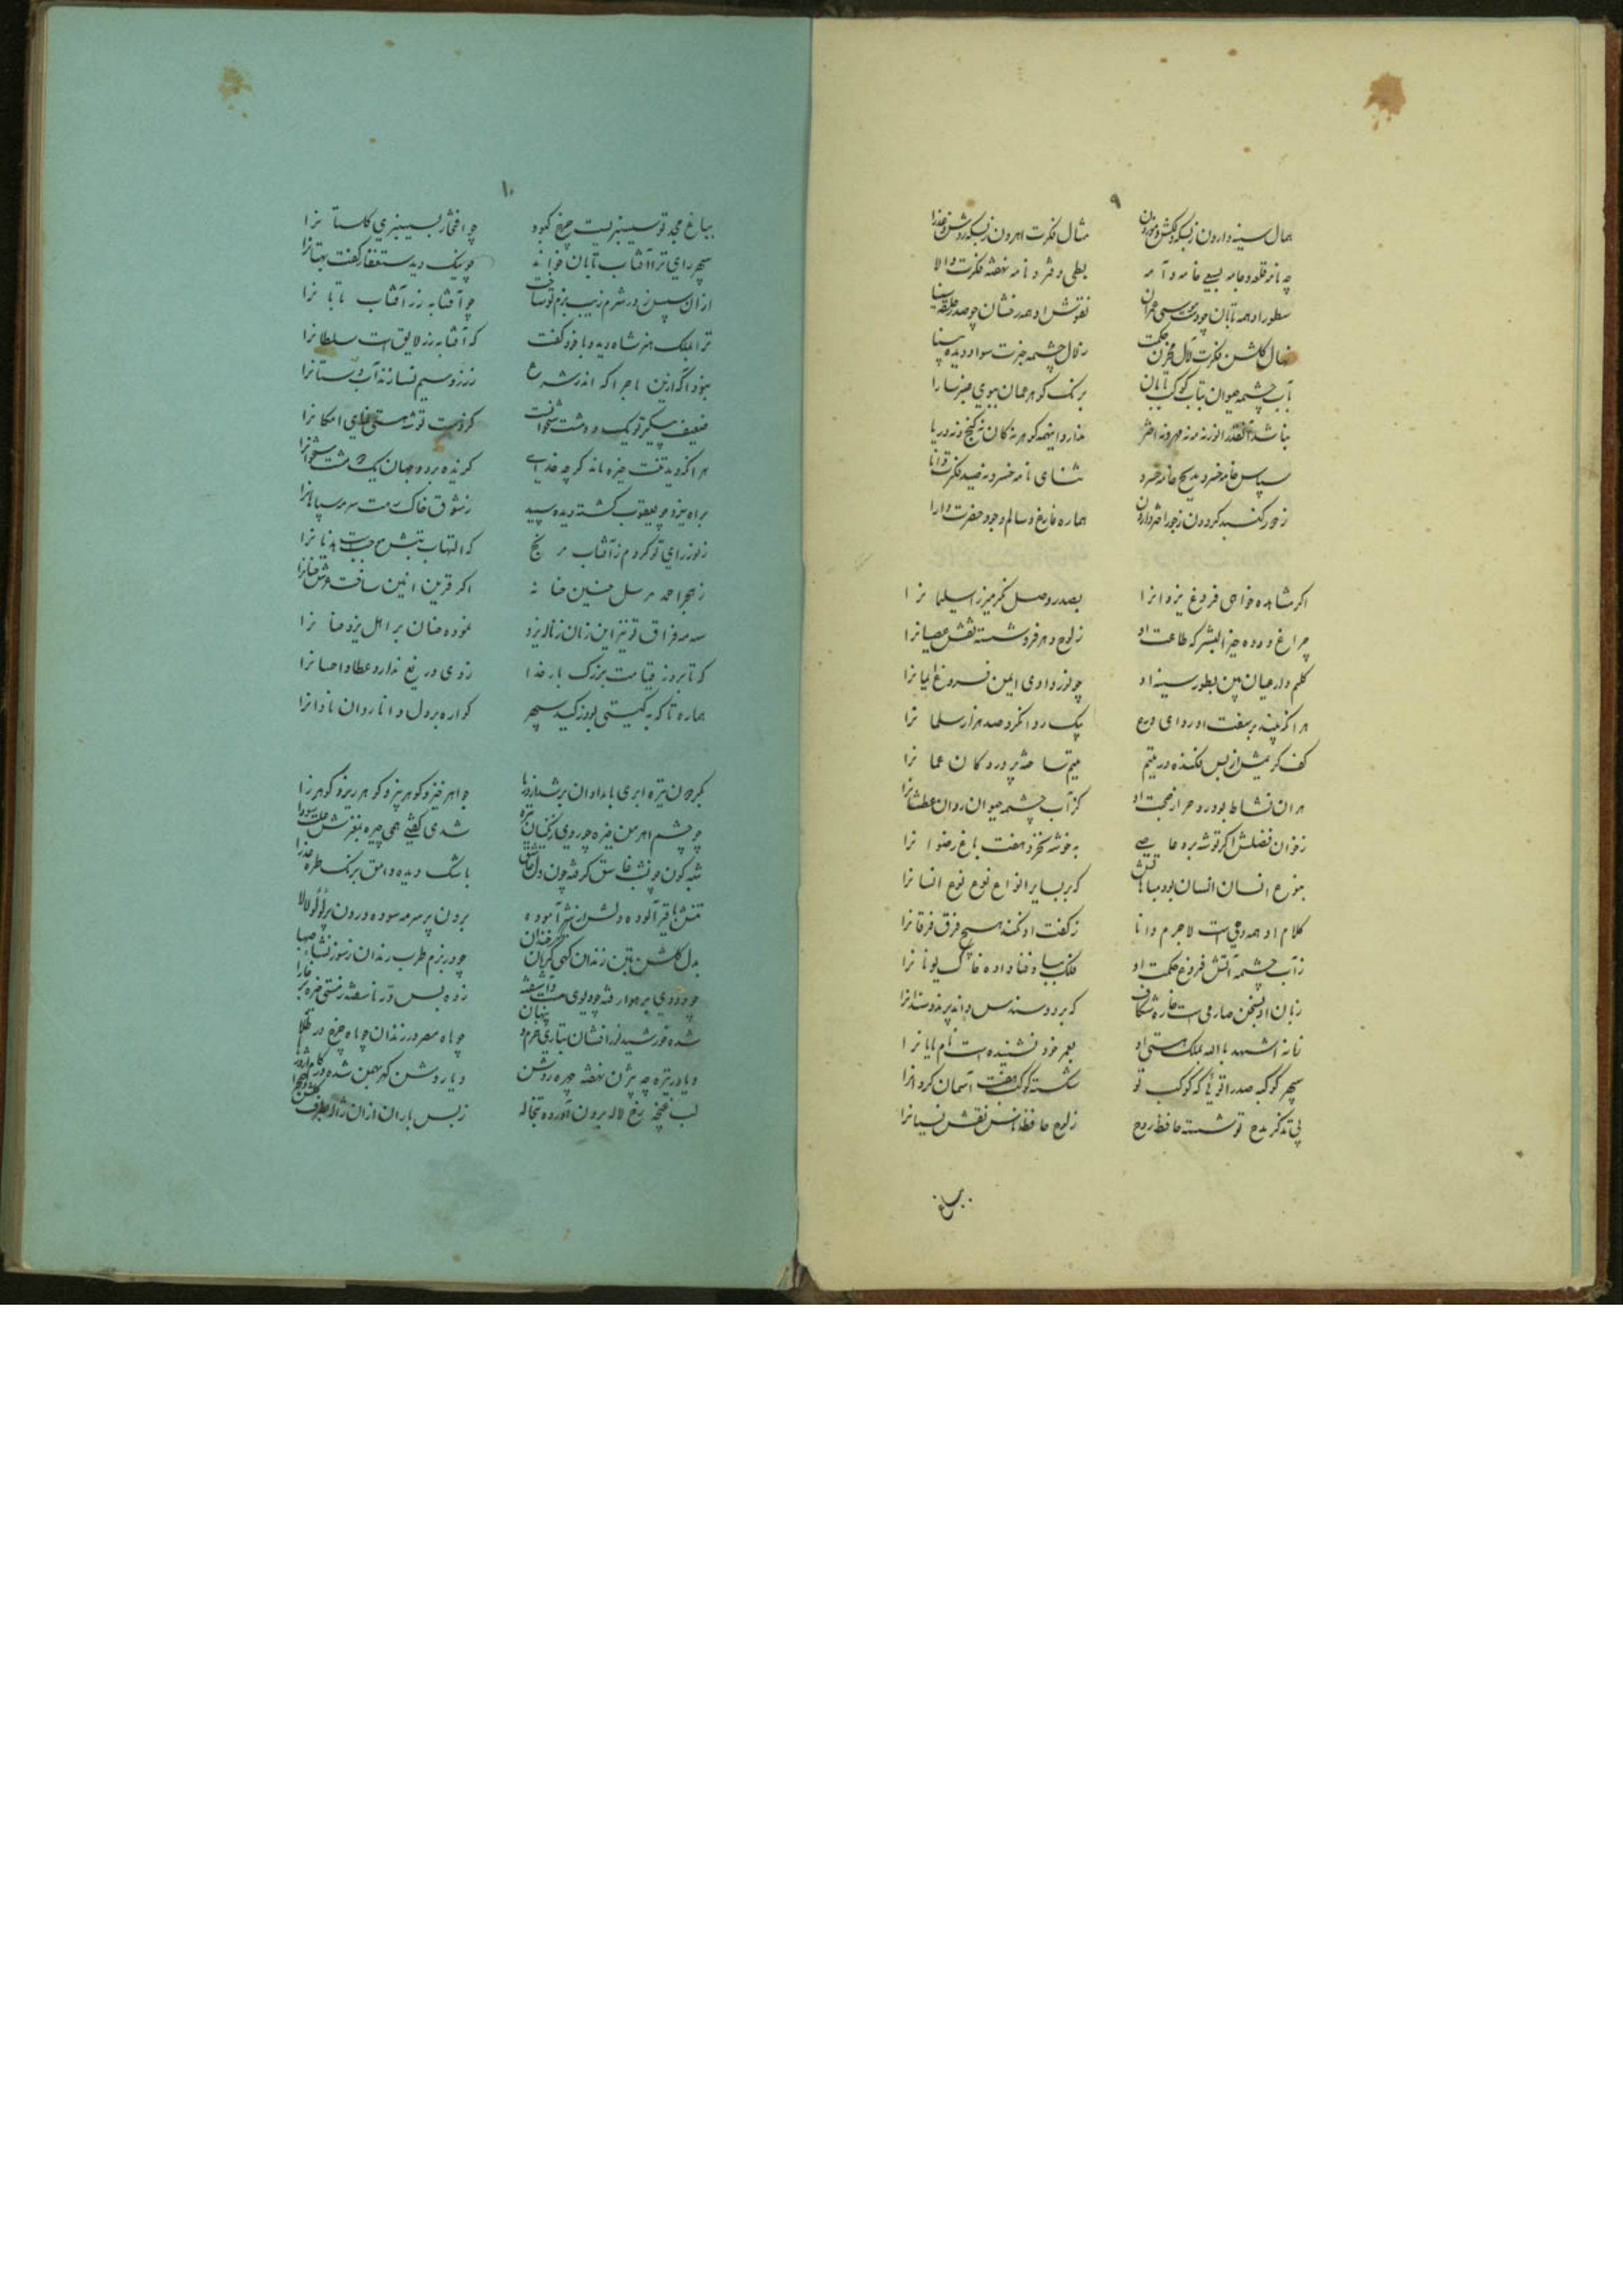 ۹
جمال سینه دارون ز بسکه دلکش و موزون مثال فکرت اهرون ز بسکه روشن و غذرا
چه نامه قلعه و جامه بسعی خامه و آمه بطی دفتر و نامه نهفته فکرت والا
سطور او همه تابان چو دست موسی عمران نقوش او همه رخشان چو صدر سینه سینا
نهال گلشن فکرت لآل مخزن حکمت زلال چشمه خبرت سواد دیده بینا
بآب چشمه حیوان بتاب کوکب تابان برنک کوهر عمان ببوی عنبر سارا
نباشد آنقدر انور نه مه نه مهر و نه اختر ندارد اینهمه کوهر نه کان نه کنج و نه دریا
سپاس خامه خسرو مدیح خامه خسرو ثنای نامه خسرو نه فکرت دانا
ز جور کنبد کردون ز جور اختر وارون هماره فارغ و سالم وجود حضرت دارا
اکر مشاهده خواهی فروغ یزدانرا بصدر و صل نکر میرزا سلیمانرا
چراغ دوده خیر البشر که طاعت او ز لوح دهر فرو شسته نقش عصیانرا
کلیم دار عیان بین بطور سینه او چو نور وادی ایمن فروغ ایمانرا
هر آنکه بیند بر سفت او ردای ورع بیک ردا نکرد صد هزار سلمانرا
کف کریمش از بس فکنده در یتیم یتیم ساخته پرورد کان عمانرا
هر آن نشاط بود روح را ز صحبت او کز آب چشمه حیوان روان عطشانرا
ز خوان فضلش اکر توشه برد عاصی به خوشه نخرد هفت باغ رضوانرا
بنوع انسان انسان بود مباهاتش که بر سایر انواع نوع انسانرا
کلام او همه وحی است لاجرم دانا ز کفت او نکند هیچ فرق فرقانرا
ز آب چشمه آتش فروغ حکمت او فلک بباد فنا داده خاک یونانرا
زبان او بسخن صارمی است خاره شکاف که بردو سندس داند پرند و سندانرا
زمانه اشهد بالله بملک هستی او بعمر خود نشنیده است نام پایانرا
سپهر کوکبه صدرا توئیا که کوکب تو شکسته کوکبه هفت آسمان کردانرا
پی تذکر مدح تو شسته حافظ روح ز لوح حافظه انس نقش نسیانرا
بباغ
۱۰
بباغ مجد تو سیسنبریست چرخ کبود چو افتخار بسیسنبری کلستانرا
سپهر رای ترا آفتاب تابان خواند چو نیک دید ستغفار کفت بهتانرا
از آن سپس ز در شرم زیب بزم تو ساخت چو آفتابه زر آفتاب تابانرا
ترا بملک هنر شاه دید و با خود کفت که آفتابه زر لایق است سلطانرا
نبود آکه ازین ماجرا که اندر شرع ز زر و سیم نسازند آب دستانرا
ضعیف پیکر تو یک دو مشت ستخوانست که ذات تو شده هستی فزای امکانرا
هر آنکه دید تنت خیره ماند کرچه خدای کزیده بر دو جهان یک دو مشت ستخوانرا
براه یزد چو یعقوب کشته دیده سپید ز شوق خاک رهت سرمه سپاهانرا
ز نور رای تو کردم ز آفتاب مرنج که التهاب تبش موجب است هذیانرا
ز هجر احمد مرسل حنین حنانه اکر قرین انین ساخت عرش حنانرا
سه مه فراق تو نیز این زمان ز ناله یزد نموده حنان بر اهل یزد حنانرا
که تا بروز قیامت بزرک بار خدا ز وی دریغ ندارد عطا و احسانرا
هماره تا که به کیتی بود ز کید سپهر کواره بر دل دانا روان نادانرا
بکردون تیره ابری بامدادان بر شد از دریا جواهر خیز و کوهر بیز و کوهر ریز و کوهر زا
چو چشم اهرمن خیره چو روی زنکیان تیره شدی کفتی همی چیره بمغزش علت سودا
شبه کون چون شب غاسق کرفته چون دل عاشق باشک دیده وامق برنک طره عذرا
تنش با قیر آلوده دلش از شیر آموده برون پر سرمه سوده درون پر لؤلؤ لالا
بدل کلشن بتن زندان کهی کریان کهی خندان چو در بزم طرب رندان ز شور نشأه صهبا
چو دودی بر هوا رفته چو دیوی مست و آشفته زده بس در ناسفته ز مستی خیره بر خارا
شده خورشید نور افشان بتاری جرم او پنهان چو شاه مصر در زندان چو ماه چرخ در ظلما
و یا در تیره چه بیژن نهفته چهره روشن و یا روشن کهر بهمن شده در کام اژدرها
لب غنچه رخ لاله برون آورده تبخاله ز بس باران از آن ژاله بطرف کلشن و صحرا